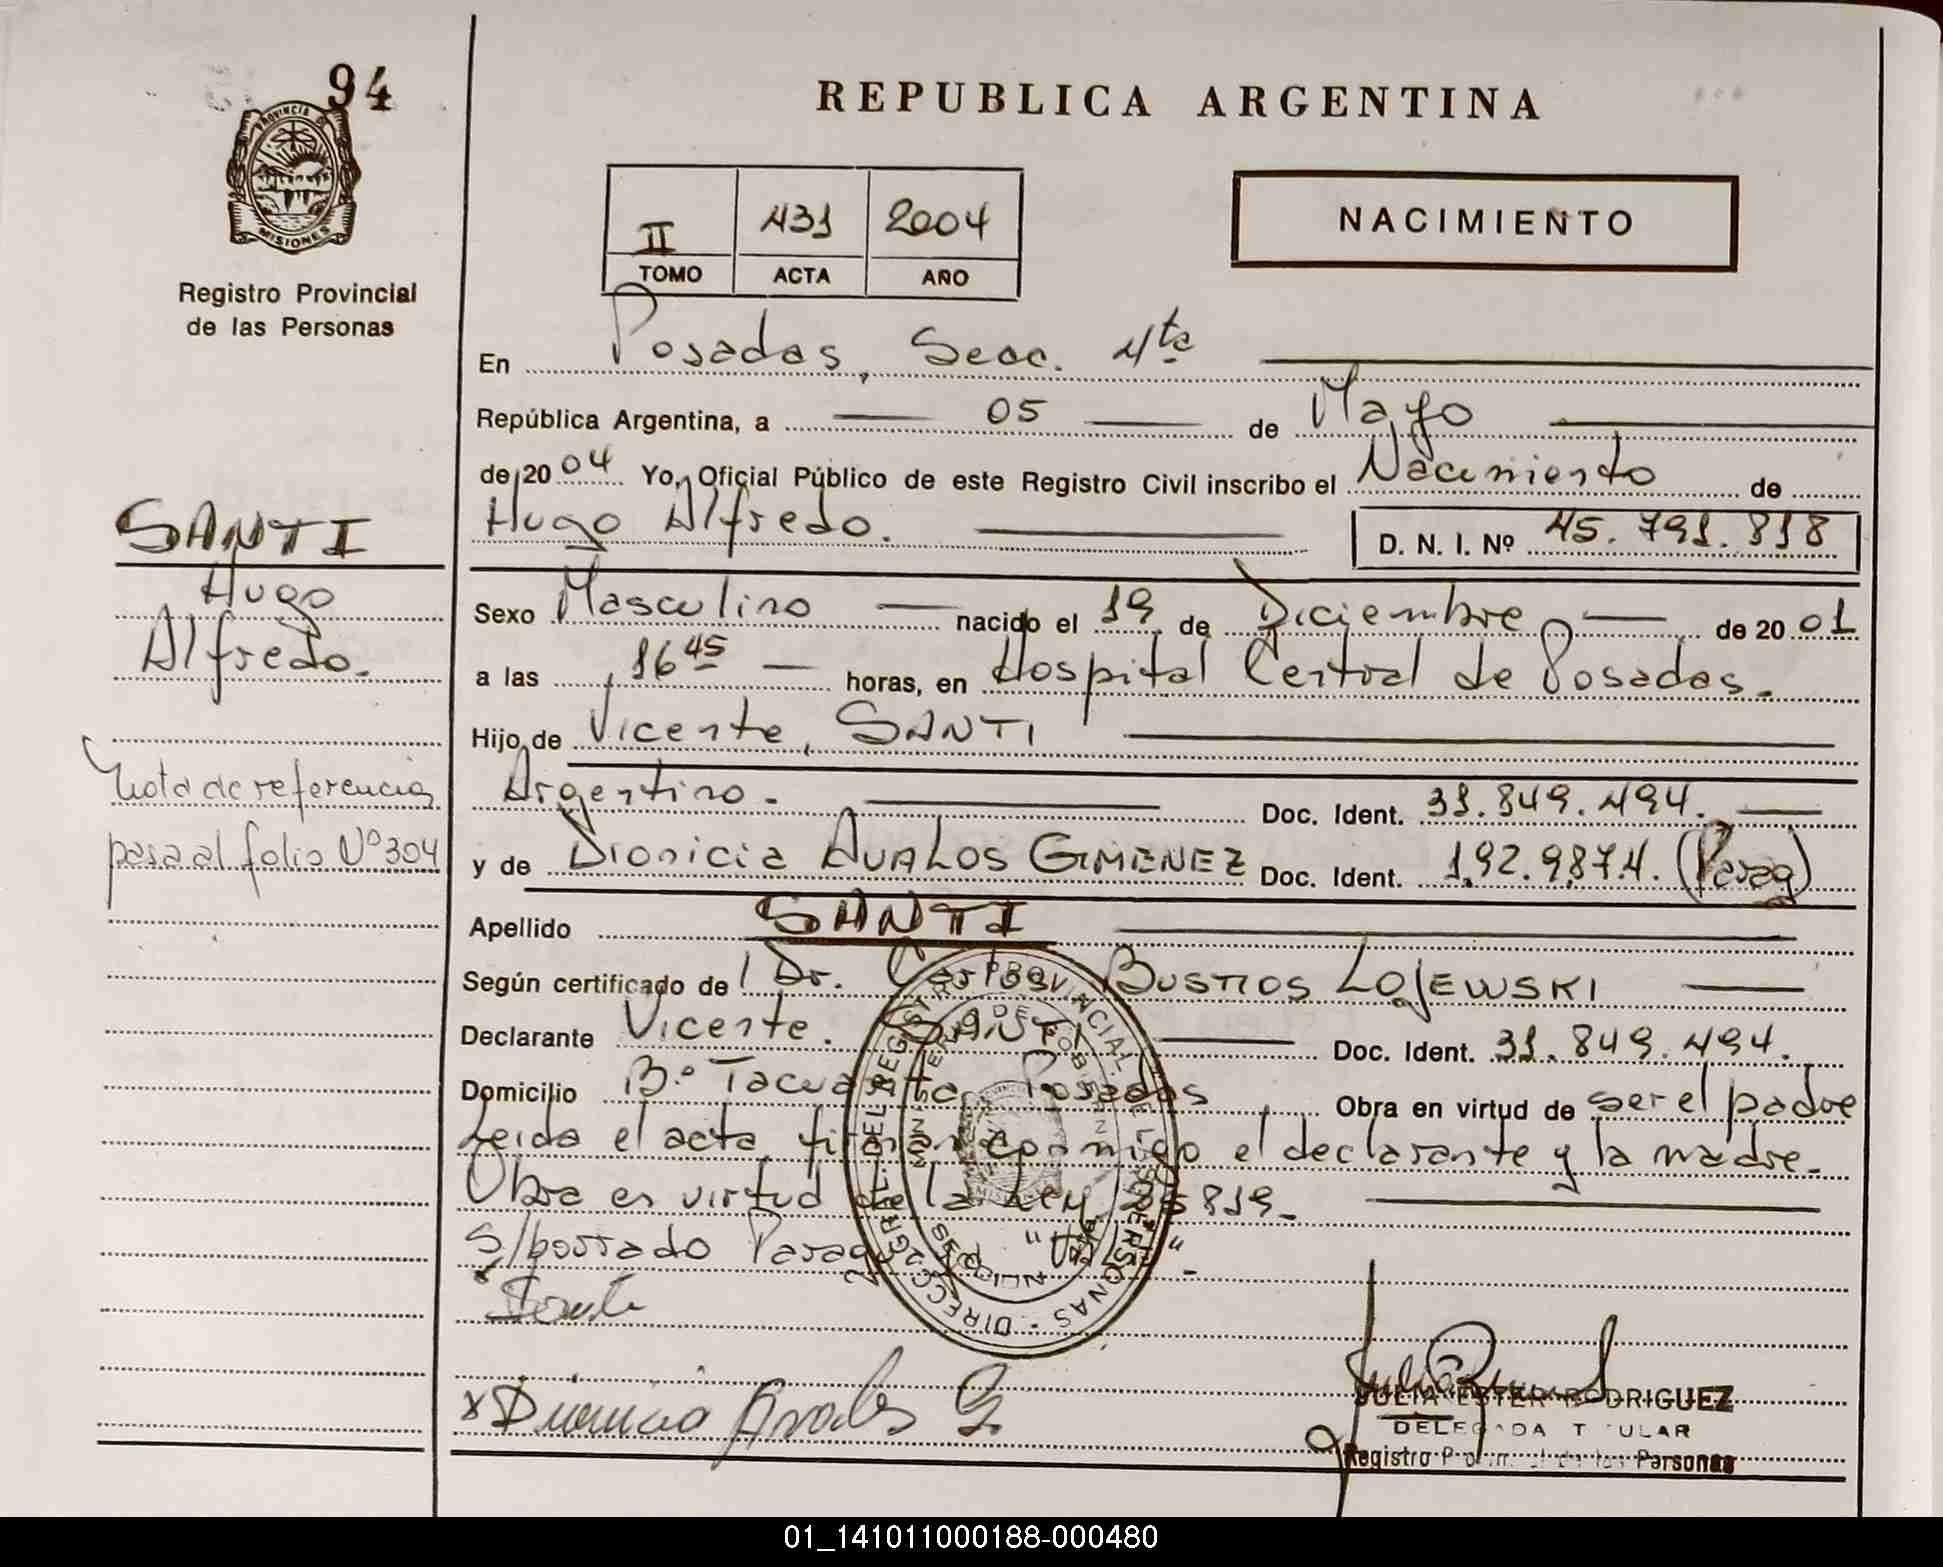 94
PROVINCIA DE
MISIONES
Registro Provincial
de las Personas
REPUBLICA ARGENTINA
II 431 2004
TOMO ACTA AÑO
NACIMIENTO
En Posadas, Secc. 4ta
República Argentina, a 05 de Mayo
de 2004 Yo, Oficial Público de este Registro Civil inscribo el Nacimiento de
Hugo Alfredo. D. N. I. Nº 45.791.818
Sexo Masculino nacido el 19 de Diciembre de 2001
a las 16 45 horas, en Hospital Central de Posadas.
Hijo de Vicente, SANTI
Argentino. Doc. Ident. 31.849.494.
y de Dionicia AVALOS GIMENEZ Doc. Ident. 1.92.9.87.4. (Parag)
Apellido SANTI
Según certificado de Dr. BUSTIOS LOJEWSKI
Declarante Vicente. SANTI Doc. Ident. 31.849.494.
Domicilio Bº Tacuarita, Posadas Obra en virtud de ser el padre
Leida el acta, firman conmigo el declarante y la madre.
Obra en virtud de la Ley 25819.
S/borrado Parag
Santi
x Dionicia Avalos G.
JULIA ESTER RODRIGUEZ
DELEGADA TITULAR
Registro Provincial de las Personas
SANTI
Hugo
Alfredo.
Nota de referencia
pasa al folio Nº 304
01_141011000188-000480